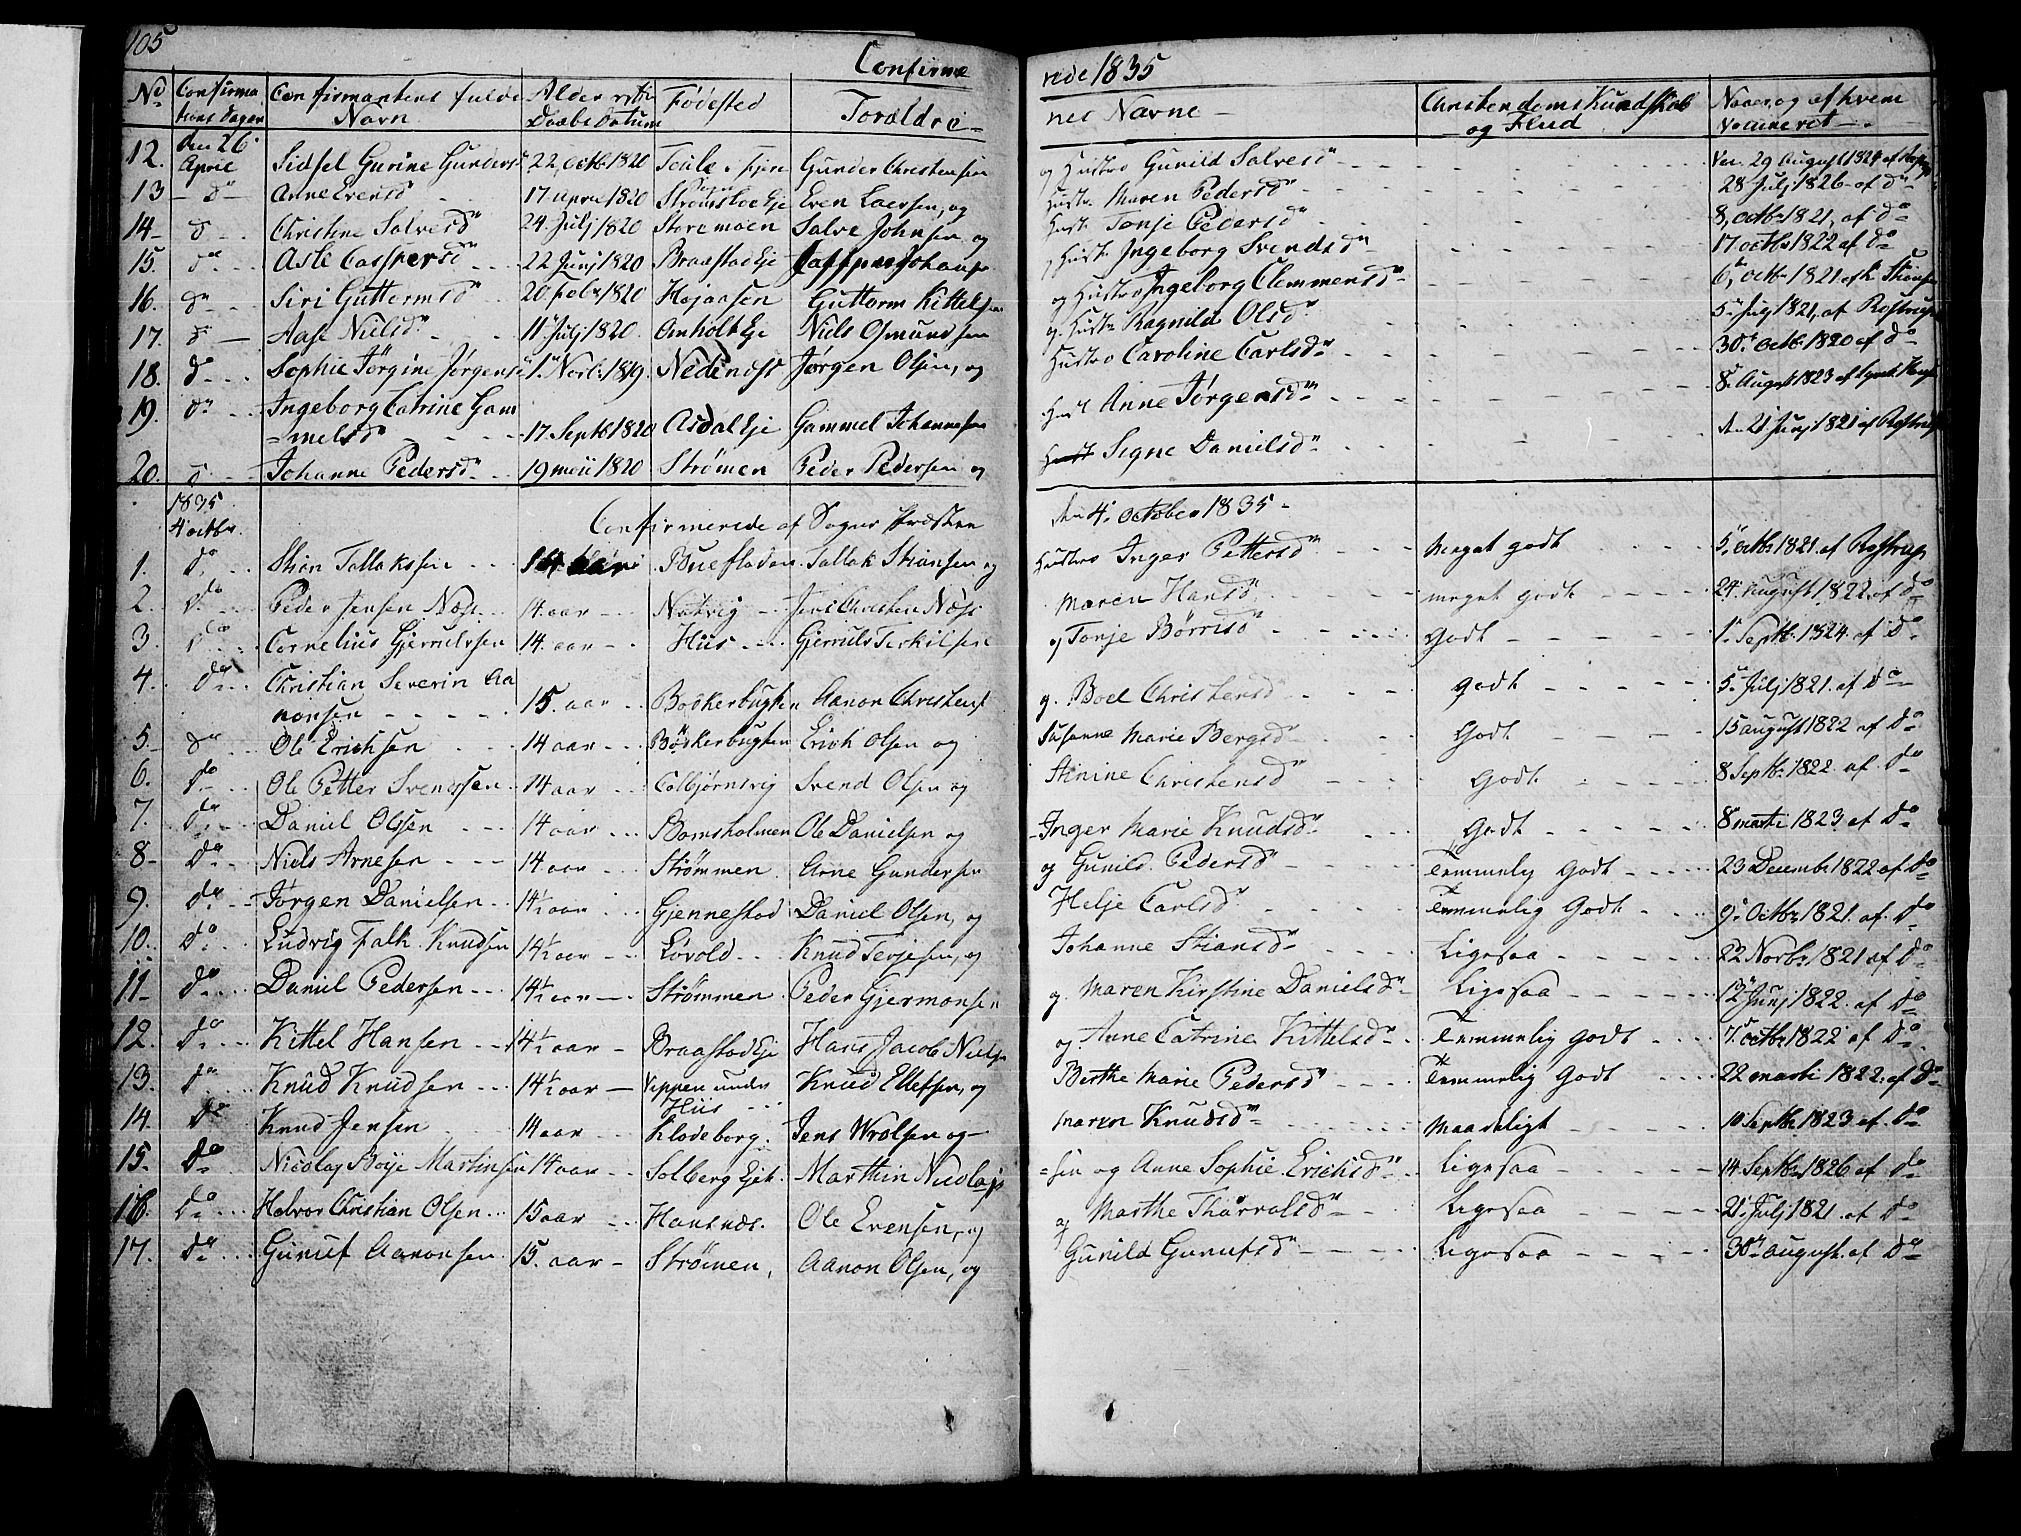 105
Confirme
rede 1835
No Confirma Confirmantens fulde Alder Fødested
tions Dagen Navn Daabs Datum Forældre
nes Navne Christendoms Kundskab og af hvem
og Flid Vaccineret
den 26
12. April Sidsel Gurine Gunders 22 octb 1820 Gunder Christensen og Hustro Gunild Salvesdr 29 August 1824 af
13 do Anne Evensdr 17 april 1820 Strømsboe Eje Even Laersen, og Hustr Maren Pedersdr 28 Julj 1826 af do
14 do Christine Salvesdr 24 Julj 1820 Storemoen Salve Johnsen og Hust Tonje Pedersdr 8 octbr 1821, af do
15. do Asle Caspersdr 22 Junj 1820 Braastad Eje Hustr Ingeborg Svendsdr 17 octbr 1822 af do
16. do Siri Guttormsdr 20 febr 1820 Højaasen Guttorm Kittelsen og Hustro Ingeborg Clemmensdr 6 octbr 1821 af
17. do Aase Nielsdr 11 Julj 1820 Amholt Eje Niels Osmundsen og Hustr Ragnild Olsdr 5 1821, af Rostrup
18. do Sophie Jørgine Jørgens 1 Novb 1819. Nedenes Jørgen Olsen, og Hustro Caroline Carlsdr 30 octb 1820 af do
19. do Ingeborg Catrine Gam Hust Anne Jørgensdr 8 August 1823 af
=melsdr 17 Septb 1820 Asdal Eje Gammel Johannesen
20. do Johanne Pedersdr 19 maii 1820 Strømen Peder Pedersen og Hust Signe Danielsdr den 21 Junj 1821 af Rostrup
1835
4 octbr. Confirmerede af Sogne Præsten den 4 october 1835
1. do Stian Tallaksen Buefladen Tallak Stiansen og Hustro Inger Pettersdr meget godt 5 octbr 1821 af Rostrup
2. do Peder Jensen Næs 14 aar Natvig Jens Christen Næs Maren Hansdr meget godt 24 August 1822 af do
3. do Cornelius Gjerrulssen 14 aar Hiis Gjeruls Terkilsen og Tonje Børresdr Godt 1 Septb 1824 af do
4. do Christian Severin Aa
nonsen 15 aar Bødkerbugten Aanon Christens og Boel Christensdr godt 5 Julj 1821 af do
5. do Ole Erichsen 14 aar Bødkerbugten Erich Olsen og Susanne Marie Bergsdr Godt 15 august 1822 af do
6. do Ole Petter Svendssen 14 aar Colbjørnsvig Svend Olsen og Stinine Christensdr Godt 8 Septbr 1822 af do
7. do Daniel Olssen 14 aar Bomsholmen Ole Danielsen og Inger Marie Knudsdr Godt 8 marti 1823 af do
8 do Niels Arnesen 14 aar Strømmen Arne Gundersen og Gunild Pedersdr Temmelig Godt 23 Decembr 1822 af do
9. do Jørgen Danielsen 14 1/2 aar Gjennestad Daniel Olsen, og Helje Carlsdr Temmelig Godt 9 Octbr 1821. af do
10. do Ludvig Falk Knudsen 14 1/2 aar Løvold Knud Terjesen, og Johanne Stiansdr Ligesaa 22 Novbr 1821 af do
11 do Daniel Pedersen 14 1/2 aar Strømmen Peder Gjermonsen og Maren Kirstine Danielsdr Ligesaa 12 Junj 1822 af do
12. do Kittel Hansen 14 1/2 aar Braastad Eje Hans Jacob Niels og Anne Catrine Kittelsdr Temmelig godt 7 octbr 1822 af do
13. do Knud Knudsen 14 1/2 aar Vippen under
Hiis Knud Ellefsen, og Berthe Marie Pedersdr Temmelig Godt 22 marti 1822 af do
14. do Knud Jensen 14 aar Klodeborg Jens Wrolsen og Maren Knudsdr Maadeligt 10 Septb 1823 af do
15. do Nicolaj Boije Martinsen 14 aar Solberg Ejet Marthin Nicolaj
=sen og Anne Sophie Erichsdr Ligesaa 14 Septbr 1826 af do
16. do Halvor Christian Olsen 15 aar Hansnæs. Ole Evensen, og Marthe Tharralsdr Ligesaa 21 Julj 1821 af do
17. do Gunuf Aanonsen 15 aar Strømen, Aanon Olsen, og Gunild Gunufsdr Ligesaa 30 august. af do